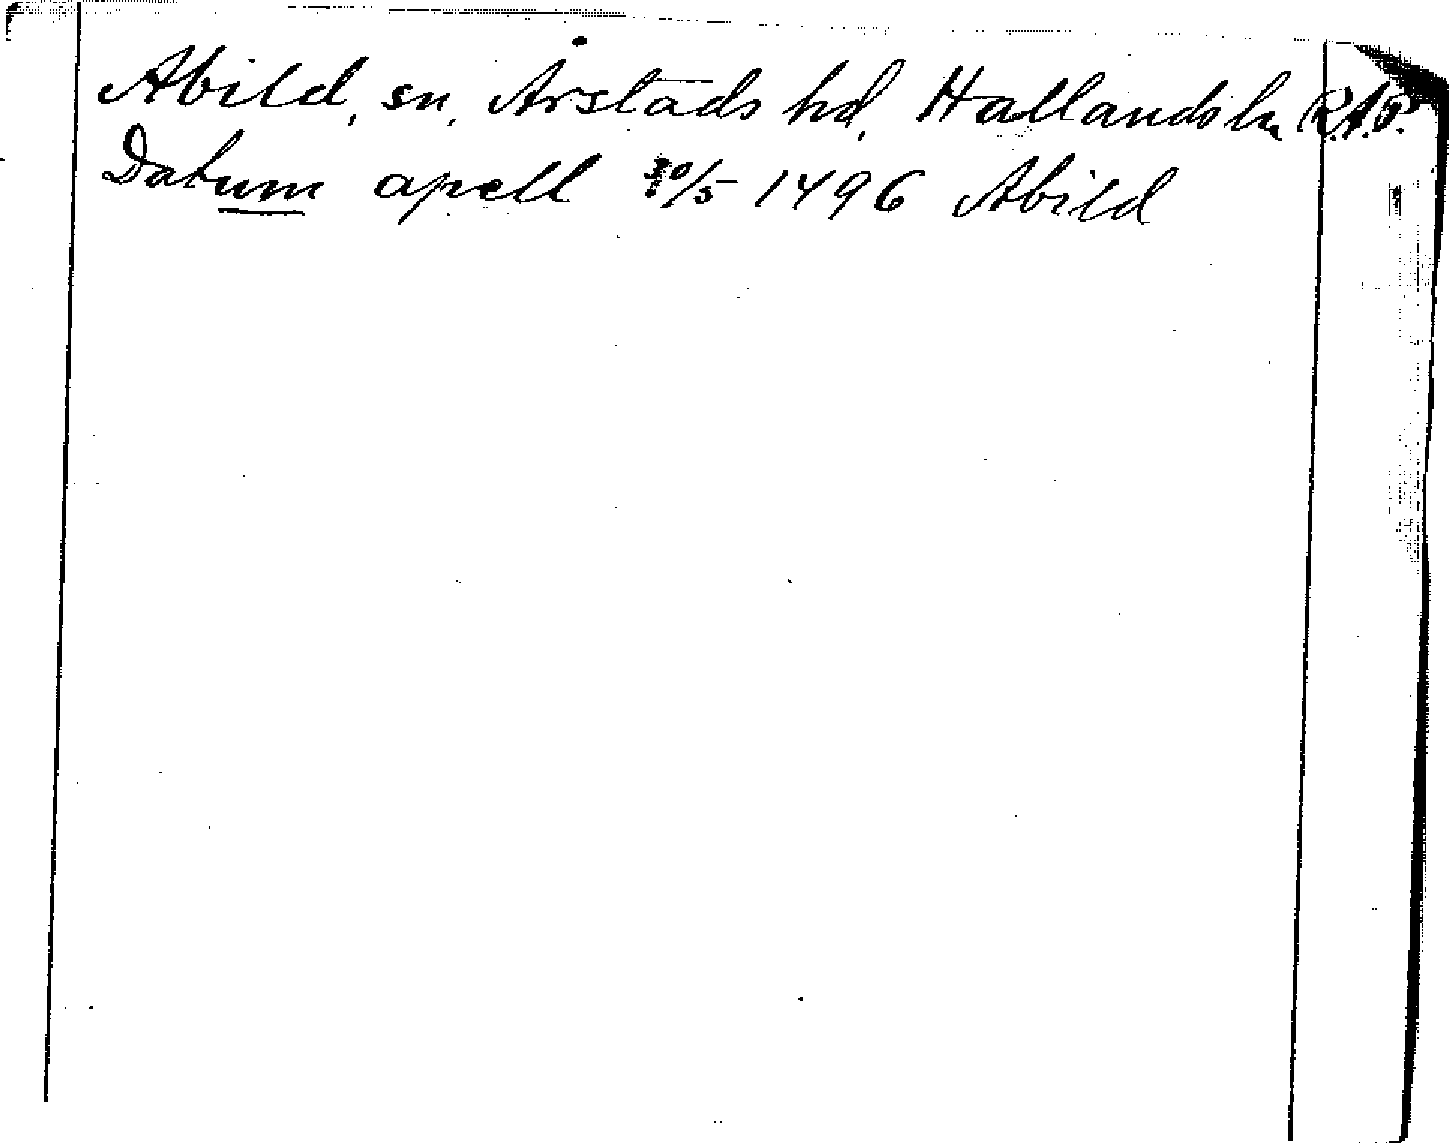 Abild, sn, Årstads hd, Hallands ln R.A.P.
Datum apell 30/5 1496 Abild